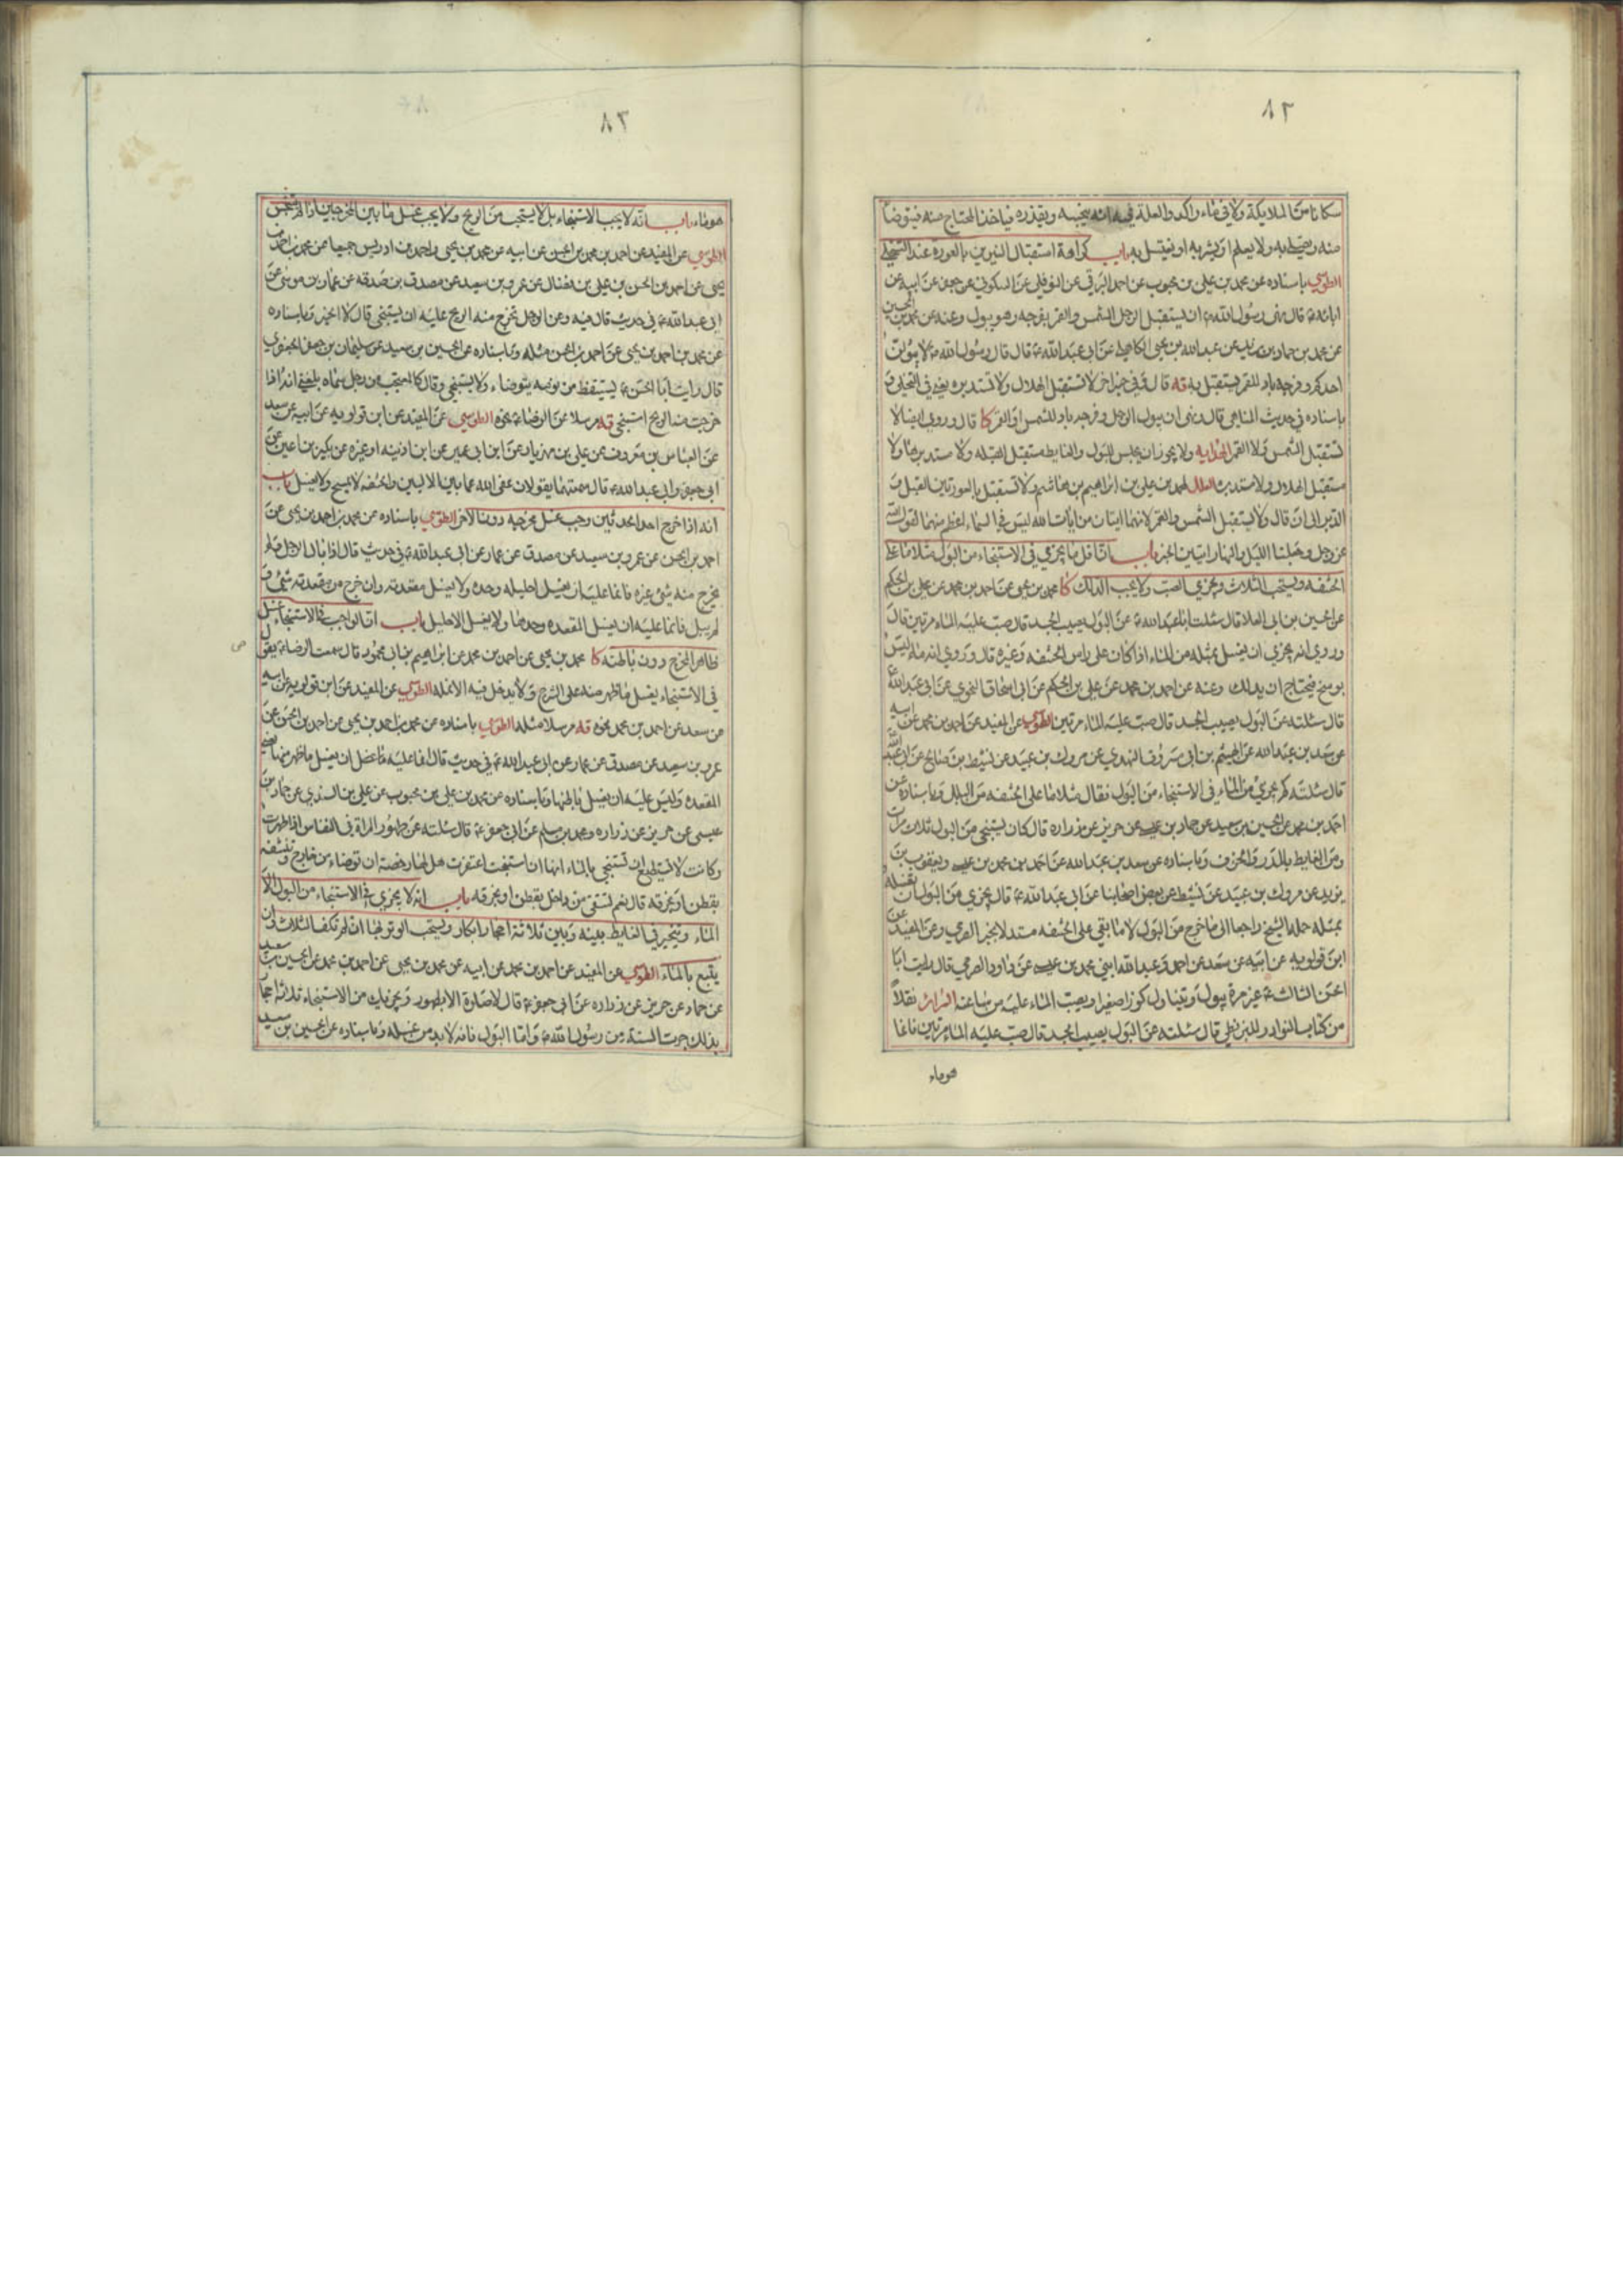 ٨٢
سكانا من الملايكة ولا في ماء راكد والعلة فيه انه ينجسه ويقذره فياخذ المحتاج منه فيتوضأ
منه ويصلي به ولا يعلم او يشربه او يغتسل به باب كراهة استقبال النيرين بالعورة عند التخلي
الطوسي باسناده عن محمد بن علي بن محبوب عن احمد البرقي عن النوفلي عن السكوني عن جعفر عن ابيه عن
ابائه ع قال نهى رسول الله ص ان يستقبل الرجل الشمس والقمر بفرجه وهو يبول وعنه عن محمد بن الحسين
عن محمد بن حماد بن زيد عن عبد الله بن يحيى الكاهلي عن ابي عبد الله ع قال قال رسول الله ص لا يبولن
احدكم وفرجه باد للقمر يستقبل به قه قال وفي خبر اخر لا تستقبل الهلال ولا تستدبره يعني في التخلي و
باسناده في حديث المناهي قال ونهى ان يبول الرجل وفرجه باد للشمس او القمر كا قال وروي ايضا لا
تستقبل الشمس ولا القمر الهداية ولا يجوز ان يجلس للبول والغايط مستقبل القبلة ولا مستدبرها ولا
مستقبل الهلال ولا مستدبره العلل لمحمد بن علي بن ابراهيم بن هاشم ولا تستقبل بالعورتين القبل و
الدبر الى ان قال ولا يستقبل الشمس والقمر لانهما ايتان من ايات الله ليس في السماء اعظم منهما لقول الله
عز وجل وجعلنا الليل والنهار ايتين الخبر باب ان اقل ما يجزي في الاستنجاء من البول مثلا ما على
الحشفه ويستحب الثلاث ويجزي الصب ولا يجب الدلك كا محمد بن يحيى عن احمد بن محمد عن علي بن الحكم
عن الحسين بن ابي العلا قال سئلت ابا عبد الله ع عن البول يصيب الجسد قال صب عليه الماء مرتين قال
وروي انه يجزي ان يغسل بمثله من الماء اذا كان على راس الحشفه وغيره قال وروي انه ماء ليس
بوسخ فيحتاج ان يدلك وعنه عن احمد بن محمد عن علي بن الحكم عن ابي اسحاق النحوي عن ابي عبد الله ع
قال سئلته عن البول يصيب الجسد قال صب عليه الماء مرتين الطوسي عن المفيد عن احمد بن محمد عن ابيه
عن سعد بن عبد الله عن الهيثم بن ابي مسروق النهدي عن مروك بن عبيد عن نشيط بن صالح عن ابي عبد الله
قال سئلته كم يجزي من الماء في الاستنجاء من البول فقال مثلا ما على الحشفه من البلل وباسناده عن
احمد بن محمد عن الحسين بن سعيد عن حماد بن عيسى عن حريز عن زراره قال كان يستنجي من البول ثلاث مرات
ومن الغايط بالمدر والخزف وباسناده عن سعد بن عبد الله عن احمد بن محمد بن عيسى ويعقوب بن
يزيد عن مروك بن عبيد عن نشيط عن بعض اصحابنا عن ابي عبد الله ع قال يجزي من البول ان يغسله
بمثله حمله الشيخ راجعا الى ما خرج من البول لا ما بقي على الحشفه مستدلا بخبر الصرمي وعن المفيد عن
ابن قولويه عن ابيه عن سعد عن احمد وعبد الله ابني محمد بن عيسى عن داود الصرمي قال رايت ابا
الحسن الثالث ع غير مرة يبول ويتناول كوزا صغيرا ويصب الماء عليه من ساعته السرائر نقلا
من كتاب النوادر للبزنطي قال سئلته عن البول يصيب الجسد قال صب عليه الماء مرتين فانما
هو ماء
٨٣
هو ماء باب انه لا يجب الاستنجاء بل لا يستحب من الريح ولا يجب غسل ما بين المخرجين
الطوسي عن المفيد عن احمد بن محمد بن الحسن عن ابيه عن محمد بن يحيى واحمد بن ادريس جميعا عن محمد بن احمد بن
يحيى عن احمد بن الحسن بن علي بن فضال عن عمرو بن سعيد عن مصدق بن صدقه عن عمار بن موسى عن
ابي عبد الله ع في حديث قال فيه وعن الرجل تخرج منه الريح عليه ان يستنجي قال لا الخبر وباسناده
عن محمد بن احمد بن يحيى عن احمد بن الحسن مثله وباسناده عن الحسين بن سعيد عن سليمان بن جعفر الجعفري
قال رايت ابا الحسن ع يستيقظ من نومه يتوضاء ولا يستنجي وقال كالمتعجب من رجل سماه بلغني انه اذا
خرجت منه الريح استنجى قه مرسلا عن الرضا ع نحوه الطوسي عن المفيد عن ابن قولويه عن ابيه عن سعد
عن العباس بن معروف عن علي بن مهزيار عن ابن ابي عمير عن ابن اذينه او غيره عن بكير بن اعين عن
ابي جعفر وابي عبد الله ع قال سمعتهما يقولان عفى الله عما بين الاليين والحشفه لا يمسح ولا يغسل باب
انه اذا خرج احد الحدثين وجب غسل مخرجه دون الاخر الطوسي باسناده عن محمد بن احمد بن يحيى عن
احمد بن الحسن عن عمرو بن سعيد عن مصدق عن عمار عن ابي عبد الله ع في حديث قال اذا بال الرجل ولم
يخرج منه شئ غيره فانما عليه ان يغسل احليله وحده ولا يغسل مقعدته وان خرج من مقعدته شئ و
لم يبل فانما عليه ان يغسل المقعده وحدها ولا يغسل الاحليل باب ان الواجب في الاستنجاء غسل
ظاهر المخرج دون باطنه كا محمد بن يحيى عن احمد بن محمد عن ابراهيم بن ابي محمود قال سمعت الرضا ع يقول
في الاستنجاء يغسل ما ظهر منه على الشرج ولا يدخل فيه الانمله الطوسي عن المفيد عن ابن قولويه عن ابيه
عن سعد عن احمد بن محمد نحوه قه مرسلا مثله الطوسي باسناده عن محمد بن احمد بن يحيى عن احمد بن الحسن عن
عمرو بن سعيد عن مصدق عن عمار عن ابي عبد الله ع في حديث قال انما عليه ان يغسل ما ظهر منها يعني
المقعده وليس عليه ان يغسل باطنها وباسناده عن محمد بن علي بن محبوب عن علي بن السندي عن حماد بن
عيسى عن حريز عن زراره ومحمد بن مسلم عن ابي جعفر ع قال سئلته عن طهور المراة في النفاس اذا طهرت
وكانت لا تستطيع ان تستنجي بالماء انها ان استنجت اعتقرت هل لها رخصة ان توضاء من خارج وتنشفه
بقطن او خرقه قال نعم تنقي من داخل بقطن او بخرقه باب انه لا يجزي في الاستنجاء من البول الا
الماء ويتخير في الغايط بينه وبين ثلاثة احجار ابكار ويستحب الوتر بها ان لم تكف الثلاث وان
يتبع بالماء الطوسي عن المفيد عن احمد بن محمد عن ابيه عن محمد بن يحيى عن احمد بن محمد عن الحسين بن سعيد
عن حماد عن حريز عن زراره عن ابي جعفر ع قال لا صلوة الا بطهور ويجزيك من الاستنجاء ثلاثة احجار
بذلك جرت السنة من رسول الله ص واما البول فانه لا بد من غسله وباسناده عن الحسين بن سعيد